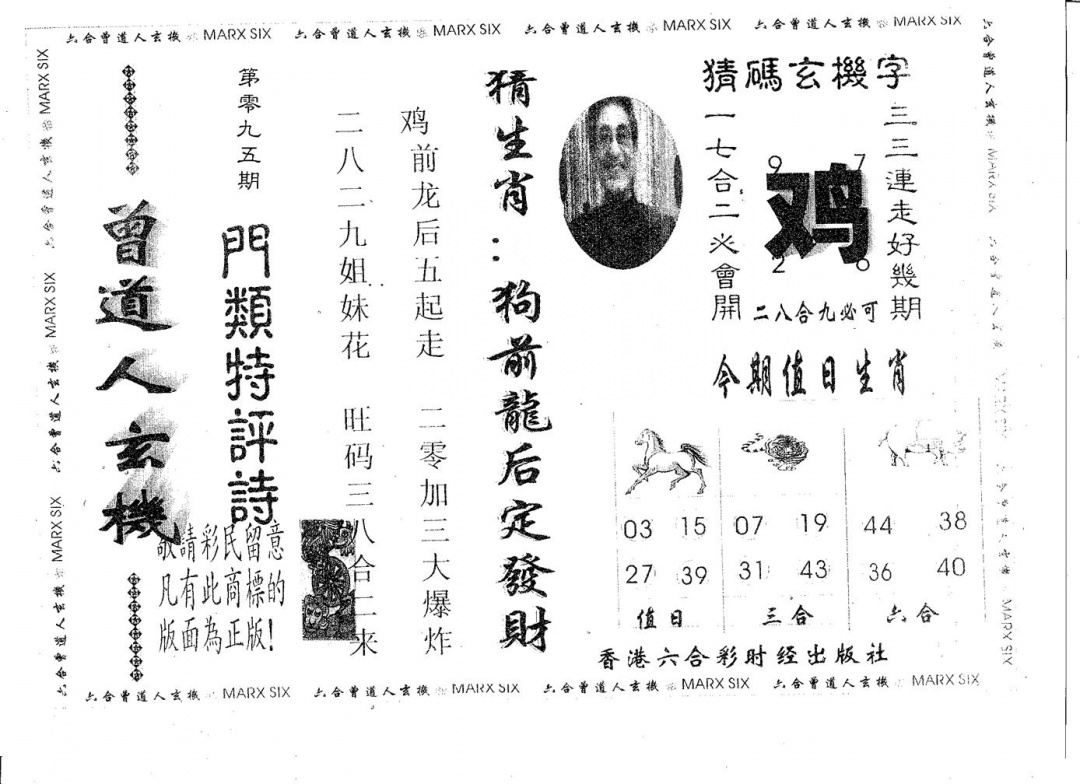 六合曾道人玄機 MARX SIX 六合曾道人玄機 MARX SIX 六合曾道人玄機 MARX SIX 六合曾道人玄機 MARX SIX
曾道人玄機
第零九五期
門類特評詩
敬請彩民留意
凡有此商標的
版面為正版!
鸡前龙后五起走 二零加三大爆炸
二八二九姐妹花 旺码三八合二来
猜生肖:狗前龍后定發財
猜碼玄機字
三三連走好幾期
一七合二必會開
9 7
鸡
2 6
二八合九必可
今期值日生肖
03 15 07 19 44 38
27 39 31 43 36 40
值日 三合 六合
香港六合彩时经出版社
六合曾道人玄機 MARX SIX 六合曾道人玄機 MARX SIX 六合曾道人玄機 MARX SIX 六合曾道人玄機 MARX SIX
六合曾道人玄機 MARX SIX 六合曾道人玄機 MARX SIX 六合曾道人玄機 MARX SIX